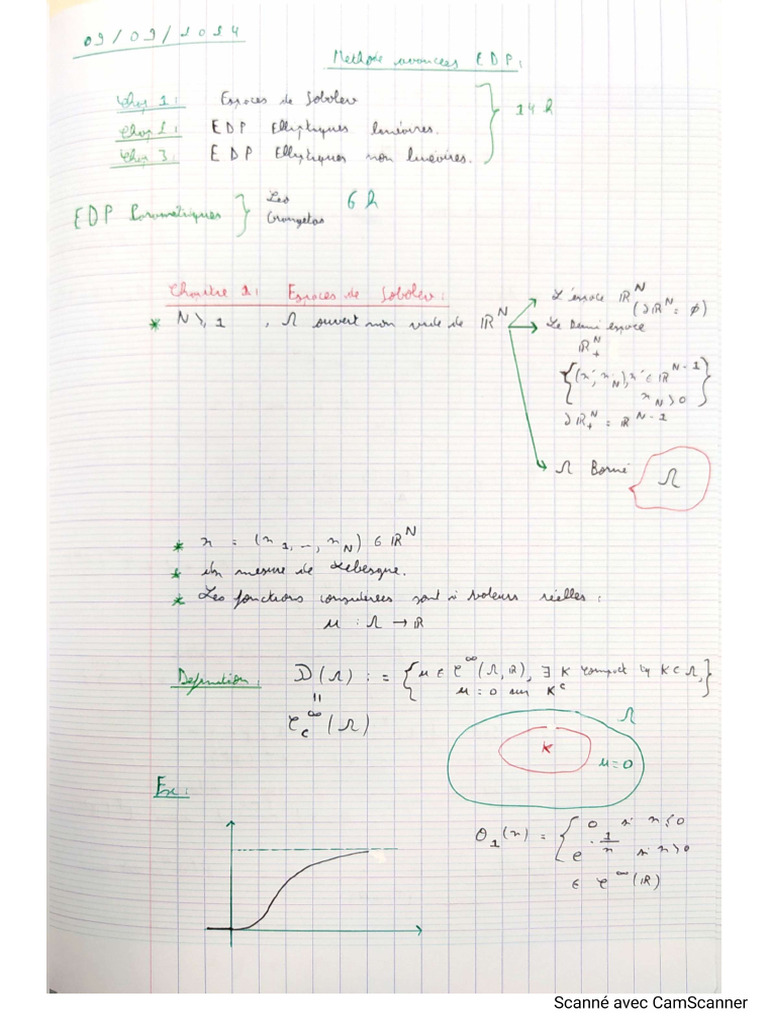 09/09/2024
Méthode avancées EDP:
Chap 1: Espaces de Sobolev
Chap 2: EDP Elliptiques linéaires.
Chap 3: EDP Elliptiques non linéaires.
14 h
EDP Paramétriques } Leo 6 h
Chapitre 1: Espaces de Sobolev:
* N ⩾ 1, Ω ouvert non vide de ℝ^N
L'espace ℝ^N
(∂ℝ^N = ∅)
Le Demi espace
ℝ^N_+
{(x', x_N), x' ∈ ℝ^{N-1}
x_N > 0}
∂ℝ^N_+ = ℝ^{N-1}
Ω Borné
Ω
* x = (x_1, –, x_N) ∈ ℝ^N
* dx mesure de Lebesgue.
* Les fonctions considérées sont à valeurs réelles:
u : Ω → ℝ
Definition: D(Ω) := {u ∈ C^∞(Ω, ℝ), ∃ K compact tq K ⊂ Ω,
u = 0 sur K^c}
=
C_c^∞(Ω)
Ω
K
u = 0
Ex:
θ_1(x) = { 0 si x ≤ 0
e^{-1/x} si x > 0
∈ C^∞(ℝ)
Scanné avec CamScanner